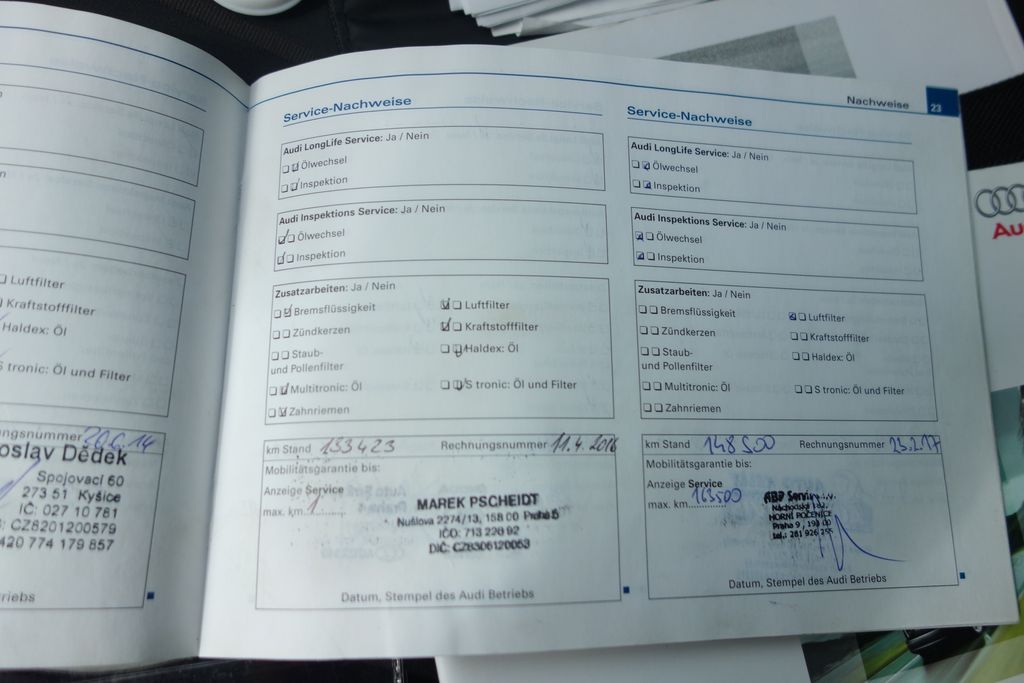 Luftfilter
Kraftstofffilter
Haldex: Öl
S tronic: Öl und Filter
ngsnummer 20.6.14
oslav Dědek
Spojovací 60
273 51 Kyšice
IČ: 027 10 781
: CZ8201200579
420 774 179 857
riebs
Service-Nachweise
Audi LongLife Service: Ja / Nein
Ölwechsel
Inspektion
Audi Inspektions Service: Ja / Nein
Ölwechsel
Inspektion
Zusatzarbeiten: Ja / Nein
Bremsflüssigkeit
Luftfilter
Zündkerzen
Kraftstofffilter
Staub-
und Pollenfilter
Haldex: Öl
Multitronic: Öl
S tronic: Öl und Filter
Zahnriemen
km Stand 133423 Rechnungsnummer 11.4.2016
Mobilitätsgarantie bis:
Anzeige Service
max. km 1
MAREK PSCHEIDT
Nušlova 2274/13, 158 00 Praha 5
IČO: 713 220 92
DIČ: CZ8306120053
Datum, Stempel des Audi Betriebs
Nachweise 23
Service-Nachweise
Audi LongLife Service: Ja / Nein
Ölwechsel
Inspektion
Audi Inspektions Service: Ja / Nein
Ölwechsel
Inspektion
Zusatzarbeiten: Ja / Nein
Bremsflüssigkeit
Luftfilter
Zündkerzen
Kraftstofffilter
Staub-
und Pollenfilter
Haldex: Öl
Multitronic: Öl
S tronic: Öl und Filter
Zahnriemen
km Stand 148500 Rechnungsnummer 23.2.17
Mobilitätsgarantie bis:
Anzeige Service
max. km 163500
Náchodská 182,
HORNÍ POČERNICE
Praha 9, 193 00
tel.: 281 926 255
Datum, Stempel des Audi Betriebs
Au